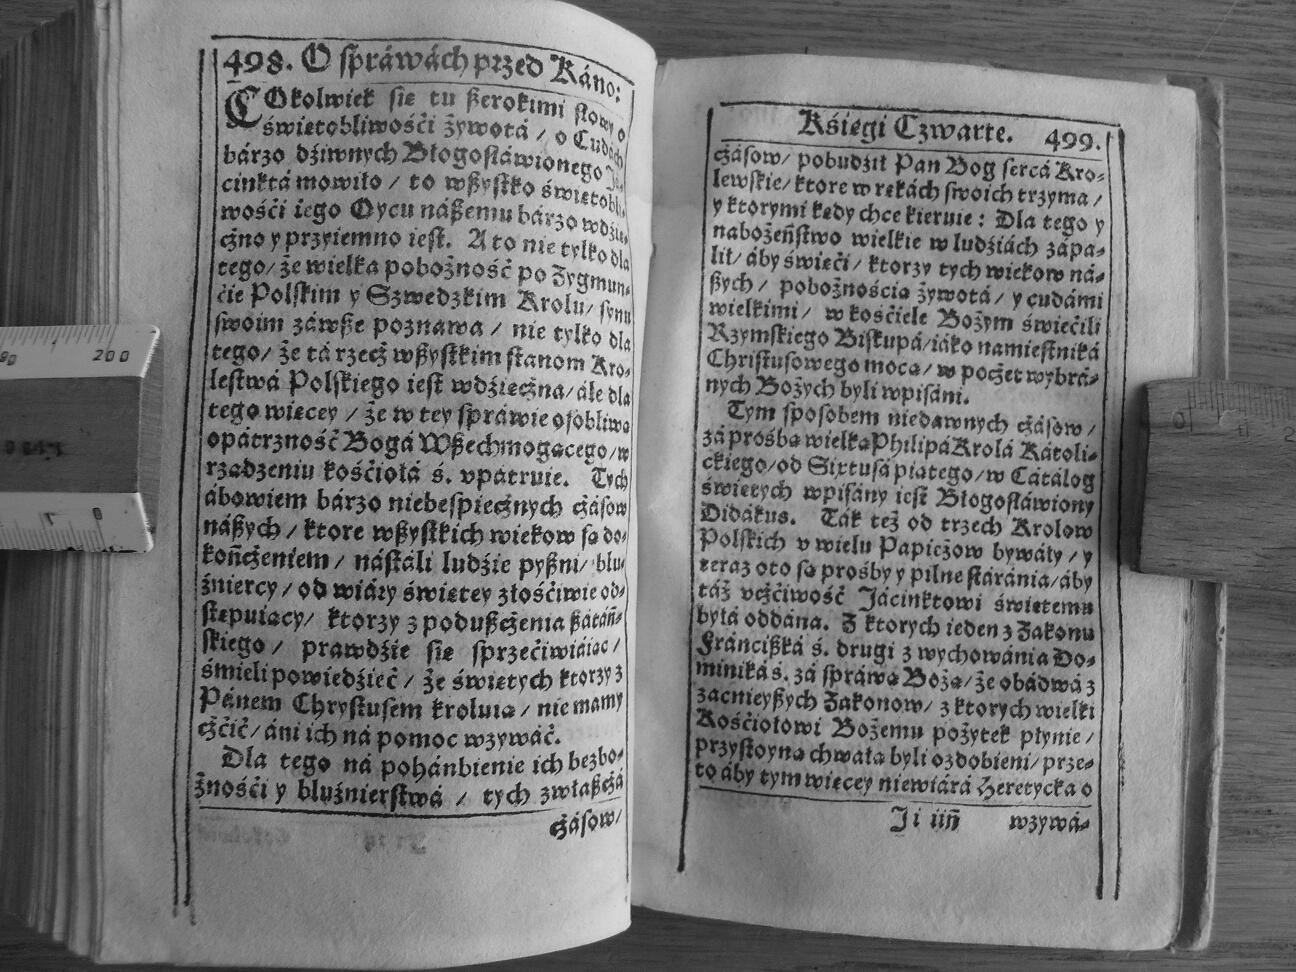 498. O spráwách przed Káno:
COkolwiek sie tu ßerokimi słowy o
świetobliwośći żywotá / o Cudách
bárzo dźiwnych Błogosłáwionego Já-
cinktá mowiło / to wßystko świetobli-
wośći iego Oycu náßemu bárzo wdzię-
cżno y przyiemno iest. A to nie tylko dla
tego/ że wielka pobożność po Zygmun-
ćie Polskim y Szwedzkim Krolu/ synu
swoim záwße poznawa / nie tylko dla
tego/ że tá rzecż wßystkim stanom Kro-
lestwá Polskiego iest wdźiecżna/ ále dla
tego wiecey / że w tey spráwie osobliwa
opátrzność Bogá Wßechmogacego/ w
rzadzeniu kośćiołá ś. vpátruie. Tych
ábowiem bárzo niebespiecżnych cżásow
náßych / ktore wßystkich wiekow sa do-
końcżeniem / nástáli ludźie pyßni/ blu-
źniercy / od wiáry świetey złośćiwie od-
stepuiacy/ ktorzy z podußcżenia ßátáń-
skiego / prawdźie sie sprzećiwiáiac /
śmieli powiedźieć / że świetych ktorzy z
Pánem Chrystusem kroluia / nie mamy
cżćić/ áni ich ná pomoc wzywáć.
Dla tego ná pohánbienie ich bezbo-
żnośći y bluźnierstwá / tych zwłaßcżá
cżásow/
Kśiegi Czwarte. 499.
cżásow/ pobudźił Pan Bog sercá Kro-
lewskie/ ktore w rekách swoich trzyma /
y ktorymi kedy chce kieruie : Dla tego y
nabożeństwo wielkie w ludźiách zápa-
lił/ áby świeći/ ktorzy tych wiekow ná-
ßych / pobożnościa żywotá / y cudámi
wielkimi / w kośćiele Bożym świećili
Rzymskiego Biskupá/iáko namiestniká
Christusowego moca/ w pocżet wybrá-
nych Bożych byli wpisáni.
Tym sposobem niedawnych cżásow /
zá prośba wielka Philipá Krolá Kátoli-
ckiego/ od Sixtusá piatego/ w Cátálog
świetych wpisány iest Błogosłáwiony
Didákus. Ták też od trzech Krolow
Polskich v wielu Papieżow bywáły / y
teraz oto sa prośby y pilne stáránia/ áby
táż vcżćiwość Jácinktowi świetemu
byłá oddána. Z ktorych ieden z Zakonu
Fránćißká ś. drugi z wychowánia Do-
miniká ś. zá spráwa Boża/ że obádwá z
zacnieyßych Zakonow/ z ktorych wielki
Kośćiołowi Bożemu pożytek płynie /
przystoyna chwała byli ozdobieni/ prze-
to áby tym wiecey niewiárá Heretycka o
Ji iiń wzywá-